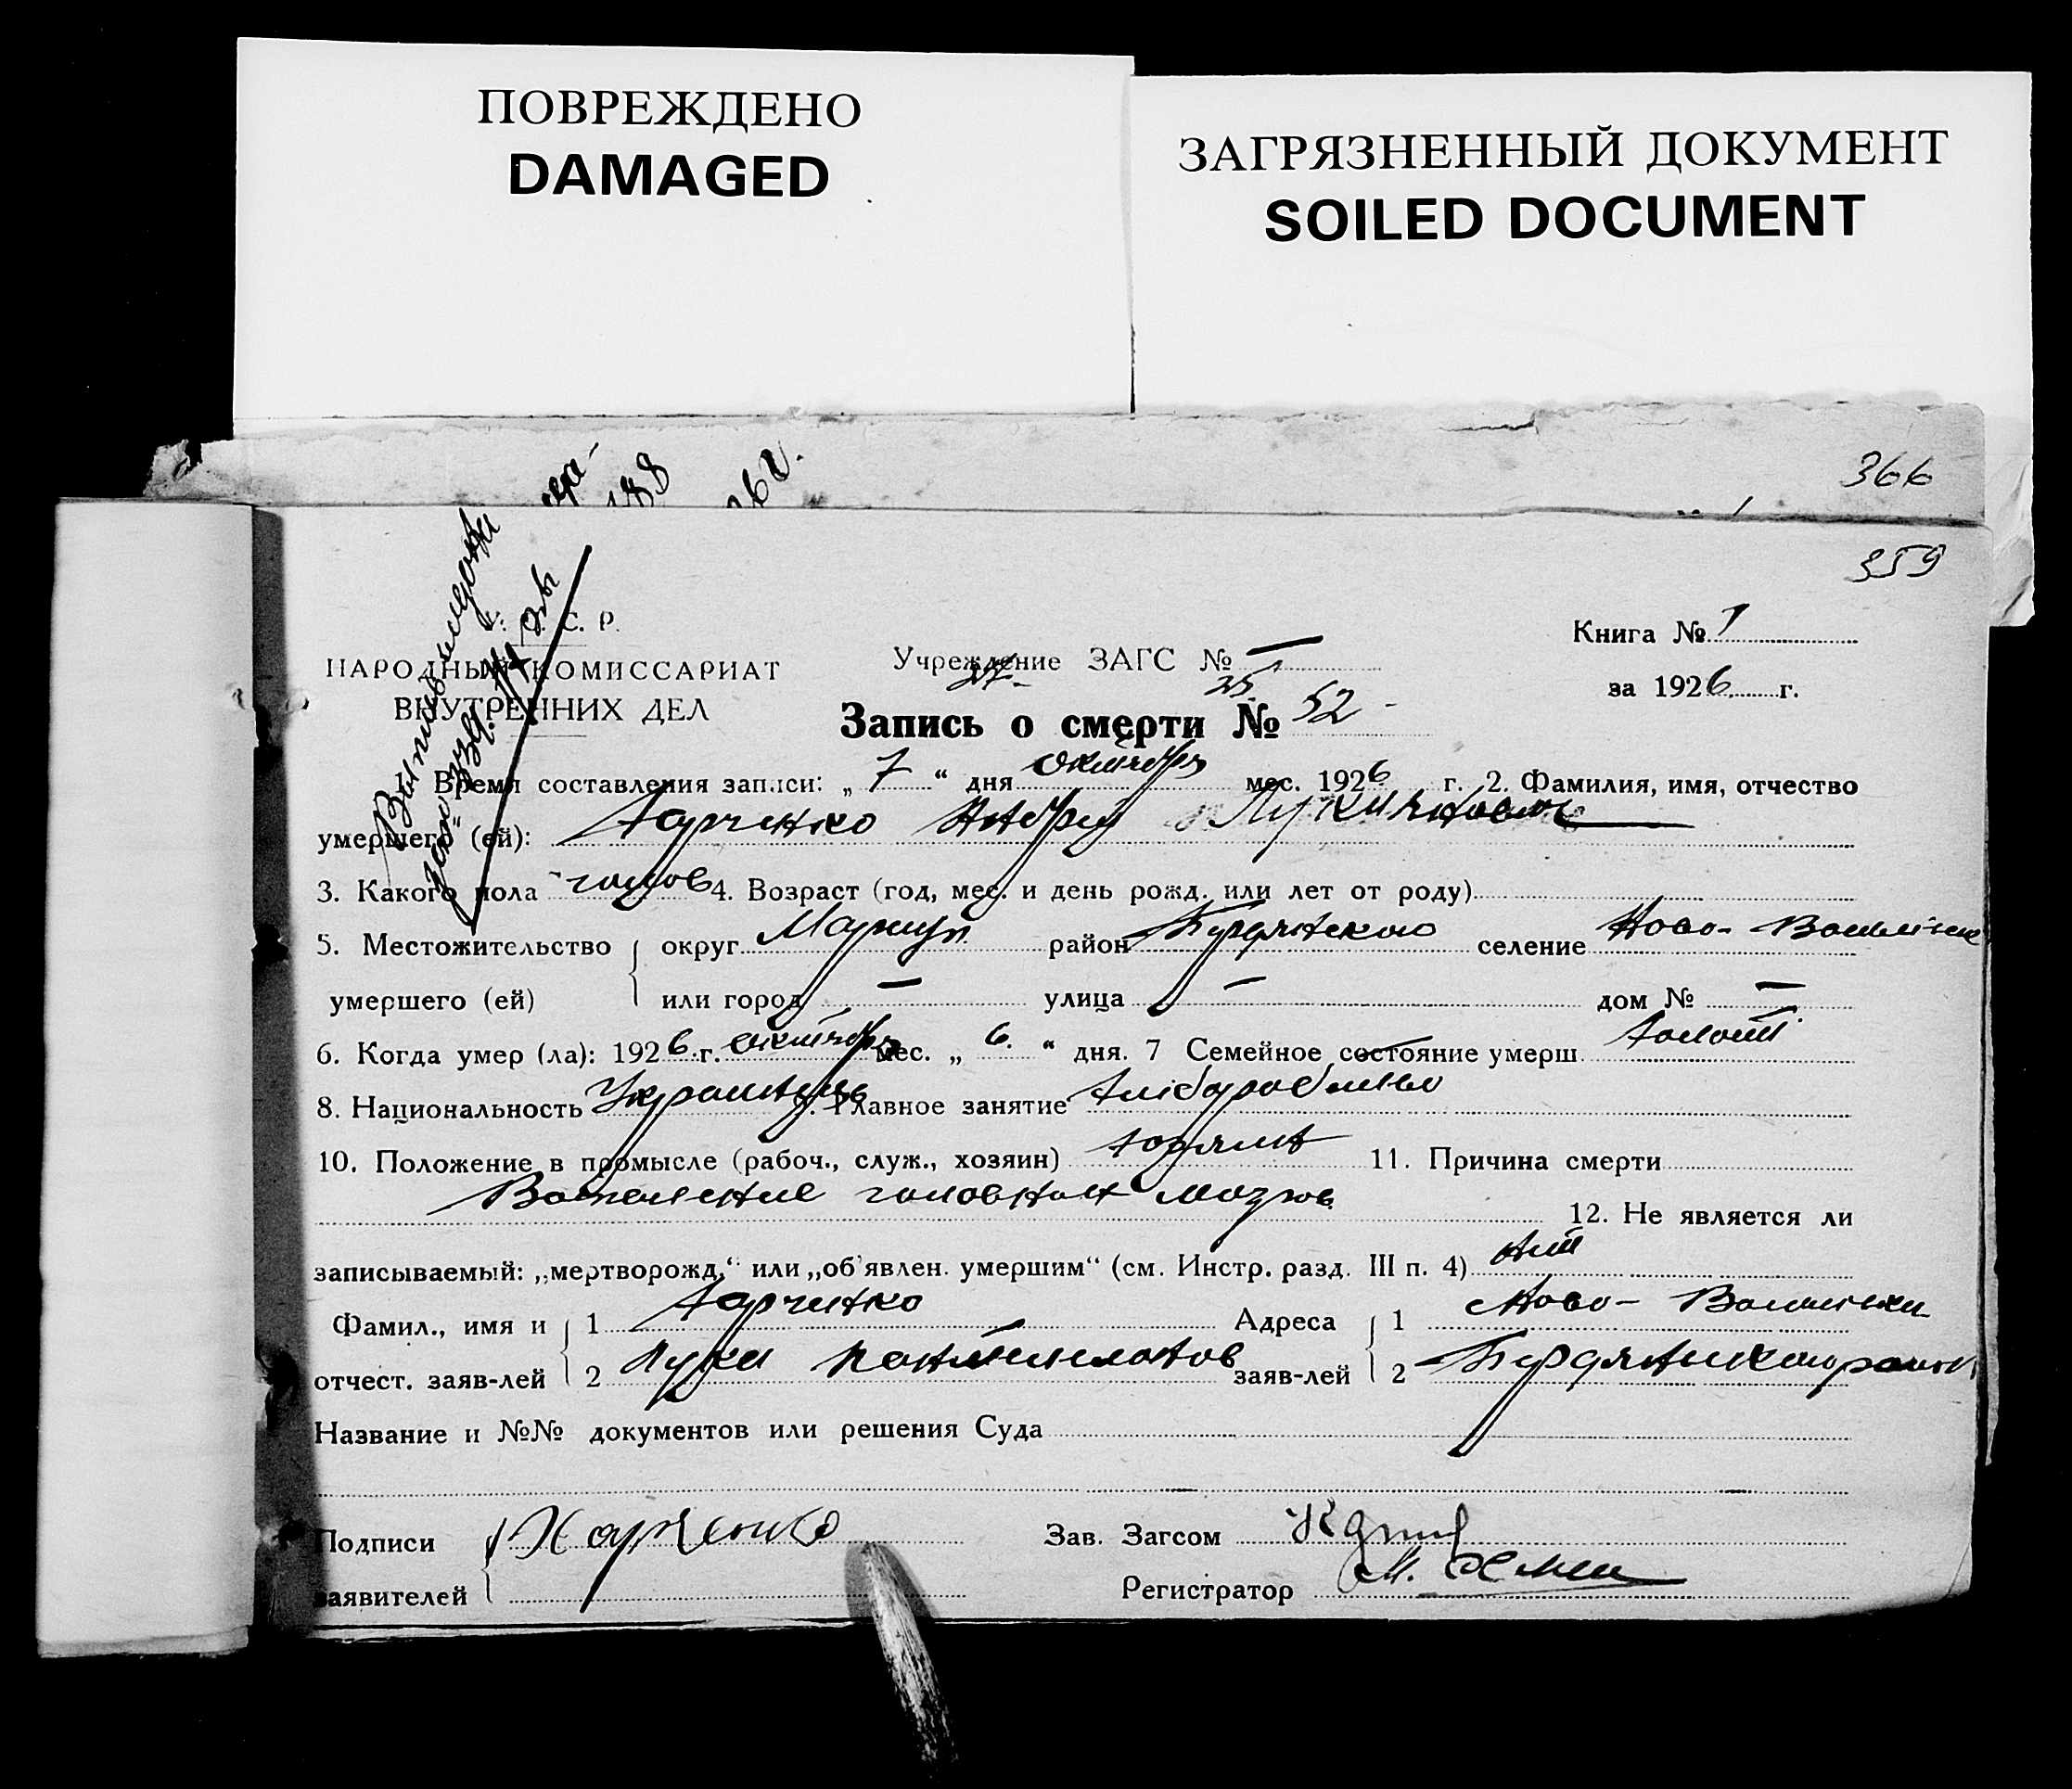 ПОВРЕЖДЕНО
DAMAGED
ЗАГРЯЗНЕННЫЙ ДОКУМЕНТ
SOILED DOCUMENT
366
359
С. Р.
НАРОДНЫЙ КОМИССАРИАТ
ВНУТРЕННИХ ДЕЛ
Учреждение ЗАГС № —
Книга № 1
за 1926 г.
Запись о смерти № 52
1. Время составления записи: „ 7 “ дня октября мес. 1926 г. 2. Фамилия, имя, отчество
умершего (ей): Харченко Андрей Лукианович
3. Какого пола 4. Возраст (год, мес. и день рожд. или лет от роду)
5. Местожительство округ Мариуп. район Бердянского селение Ново-
умершего (ей) или город — улица — дом № —
6. Когда умер (ла): 1926 г. октября мес. „ 6. “ дня. 7 Семейное состояние умерш. холост
8. Национальность Украинець 9. Главное занятие
10. Положение в промысле (рабоч., служ., хозяин) 11. Причина смерти
Воспаление головных мозгов
12. Не является ли
записываемый: „мертворожд.“ или „об'явлен. умершим“ (см. Инстр. разд. III п. 4) нет
Фамил., имя и 1 Харченко Адреса 1 Ново-
отчест. заяв-лей 2 Лука заяв-лей 2
Название и №№ документов или решения Суда
Подписи Харченко Зав. Загсом
заявителей Регистратор